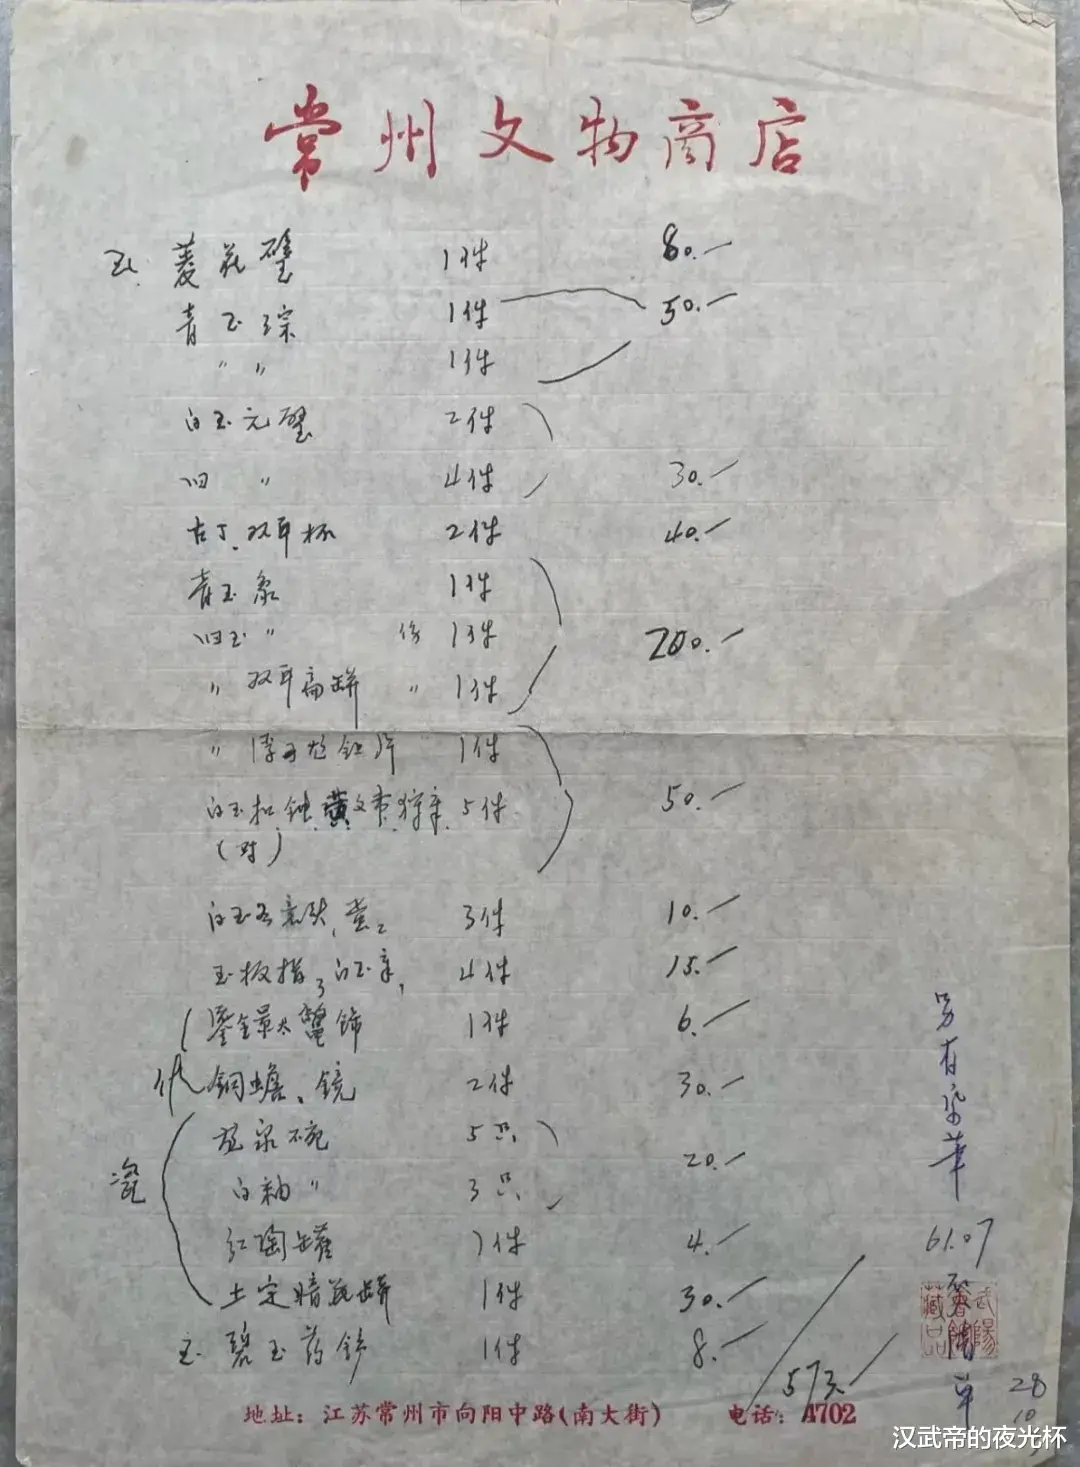 常州文物商店
玉 菱花璧 1件 80.-
青玉琮 1件 50.-
〃 〃 1件
白玉元璧 2件
旧 〃 4件 30.-
古丁.双耳杯 2件 40.-
青玉象 1件
旧玉〃 1件 200.-
〃 双耳扁缾 〃 1件
〃 1件
白玉 5件 50.-
(对)
白玉 3件 10.-
玉板指3 白玉 4件 15.-
鎏金景太 饰 1件 6.-
铜蟾、镜 2件 30.-
龙泉碗 5只
瓷 20.-
白釉〃 3只
红陶罐 1件 4.-
土定暗花缾 1件 30.-
玉 碧玉药 1件 8.-
573.-
另有发华
61.07
单
28
10
武陽
藏品
地址：江苏常州市向阳中路(南大街) 电话：4702
汉武帝的夜光杯